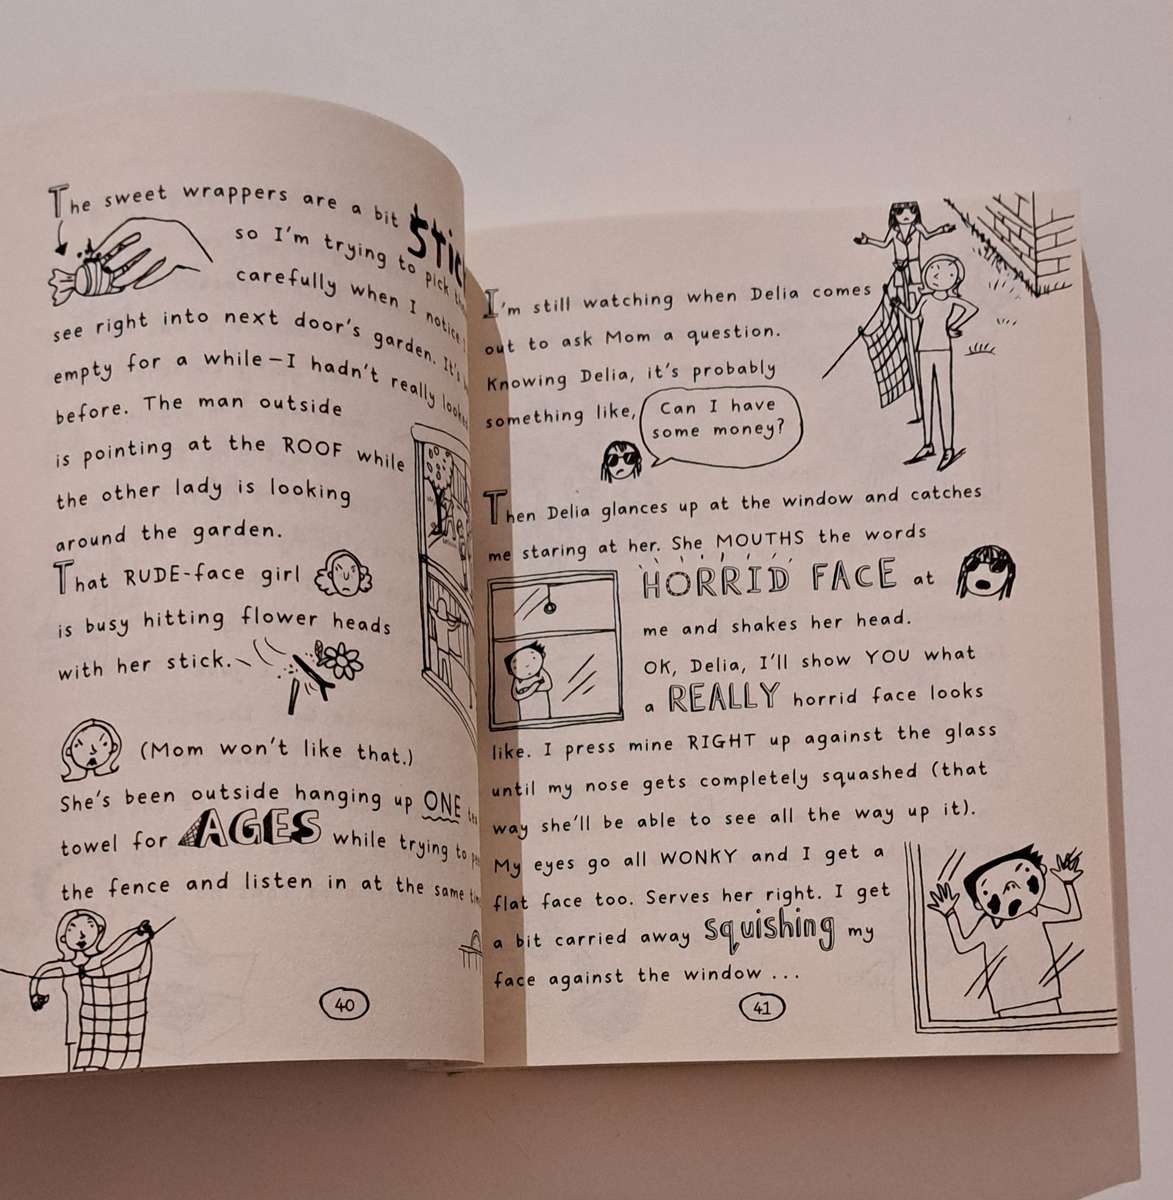 The sweet wrappers are a bit
so I'm trying to pick
carefully when I notice
see right into next door's garden. It's
empty for a while—I hadn't really
before. The man outside
is pointing at the ROOF while
the other lady is looking
around the garden.
That RUDE-face girl
is busy hitting flower heads
with her stick.
(Mom won't like that.)
She's been outside hanging up ONE
towel for AGES while trying to
the fence and listen in at the same
40
I'm still watching when Delia comes
out to ask Mom a question.
Knowing Delia, it's probably
something like,
Can I have
some money?
Then Delia glances up at the window and catches
me staring at her. She MOUTHS the words
HORRID FACE at
me and shakes her head.
OK, Delia, I'll show YOU what
a REALLY horrid face looks
like. I press mine RIGHT up against the glass
until my nose gets completely squashed (that
way she'll be able to see all the way up it).
My eyes go all WONKY and I get a
flat face too. Serves her right. I get
a bit carried away squishing my
face against the window ...
41